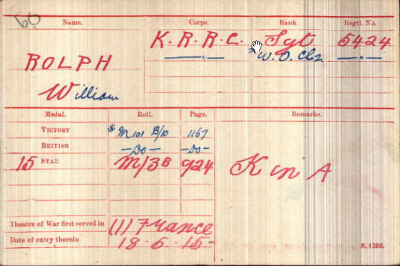 60
Name. Corps. Rank Regtl. No.
ROLPH K.R.R.C. Sgt 5424
William —"— *W.O. Cl 2 —"—
Medal. Roll. Page. Remarks.
VICTORY *M 101 B10 1167
BRITISH —Do— —Do—
15 STAR M/3B 924 K in A
Theatre of War first served in (1) France
Date of entry therein 18-5-15- K. 1380.